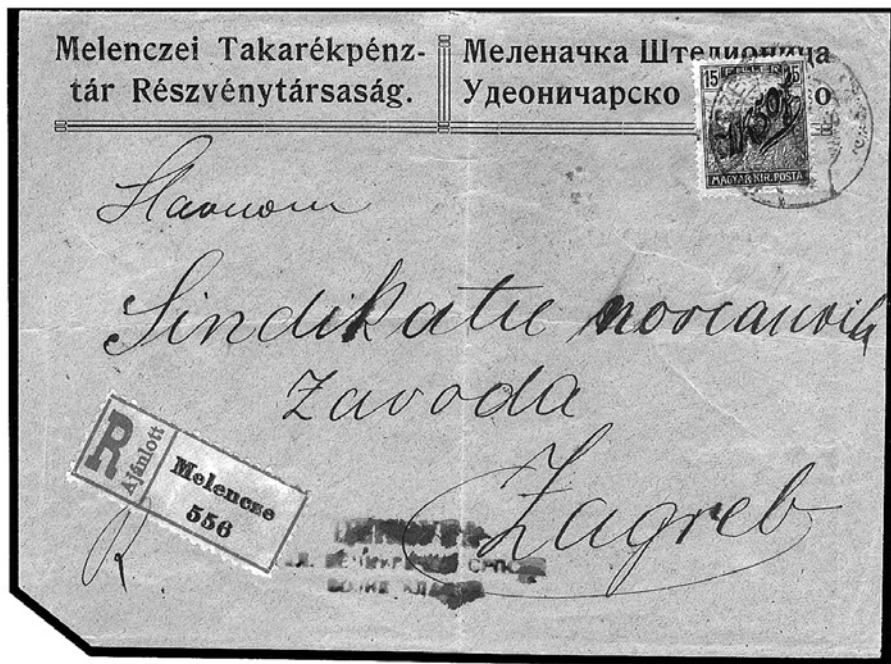 Melenczei Takarékpénz-
tár Részvénytársaság.
Меленачка Штедионица
Удеоничарско
15 FILLER 15
MAGYAR KIR. POSTA
Slavnom
Sindikatu novčanih
Zavoda
Zagreb
R
Ajánlott
Melencze
556
R
СРПС